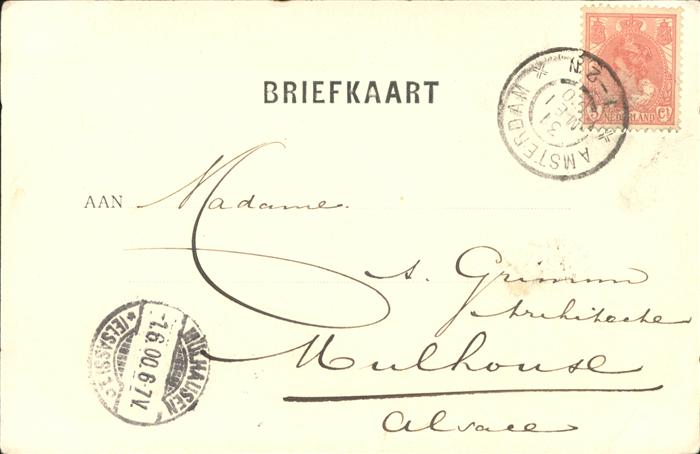 BRIEFKAART
NEDERLAND
AMSTERDAM
31 MEI
1-2 N
AAN Madame
A. Grimm
Architecte
Mulhouse
Alsace
MÜLHAUSEN
-1.6.00.6-7V.
*(ELSASS)